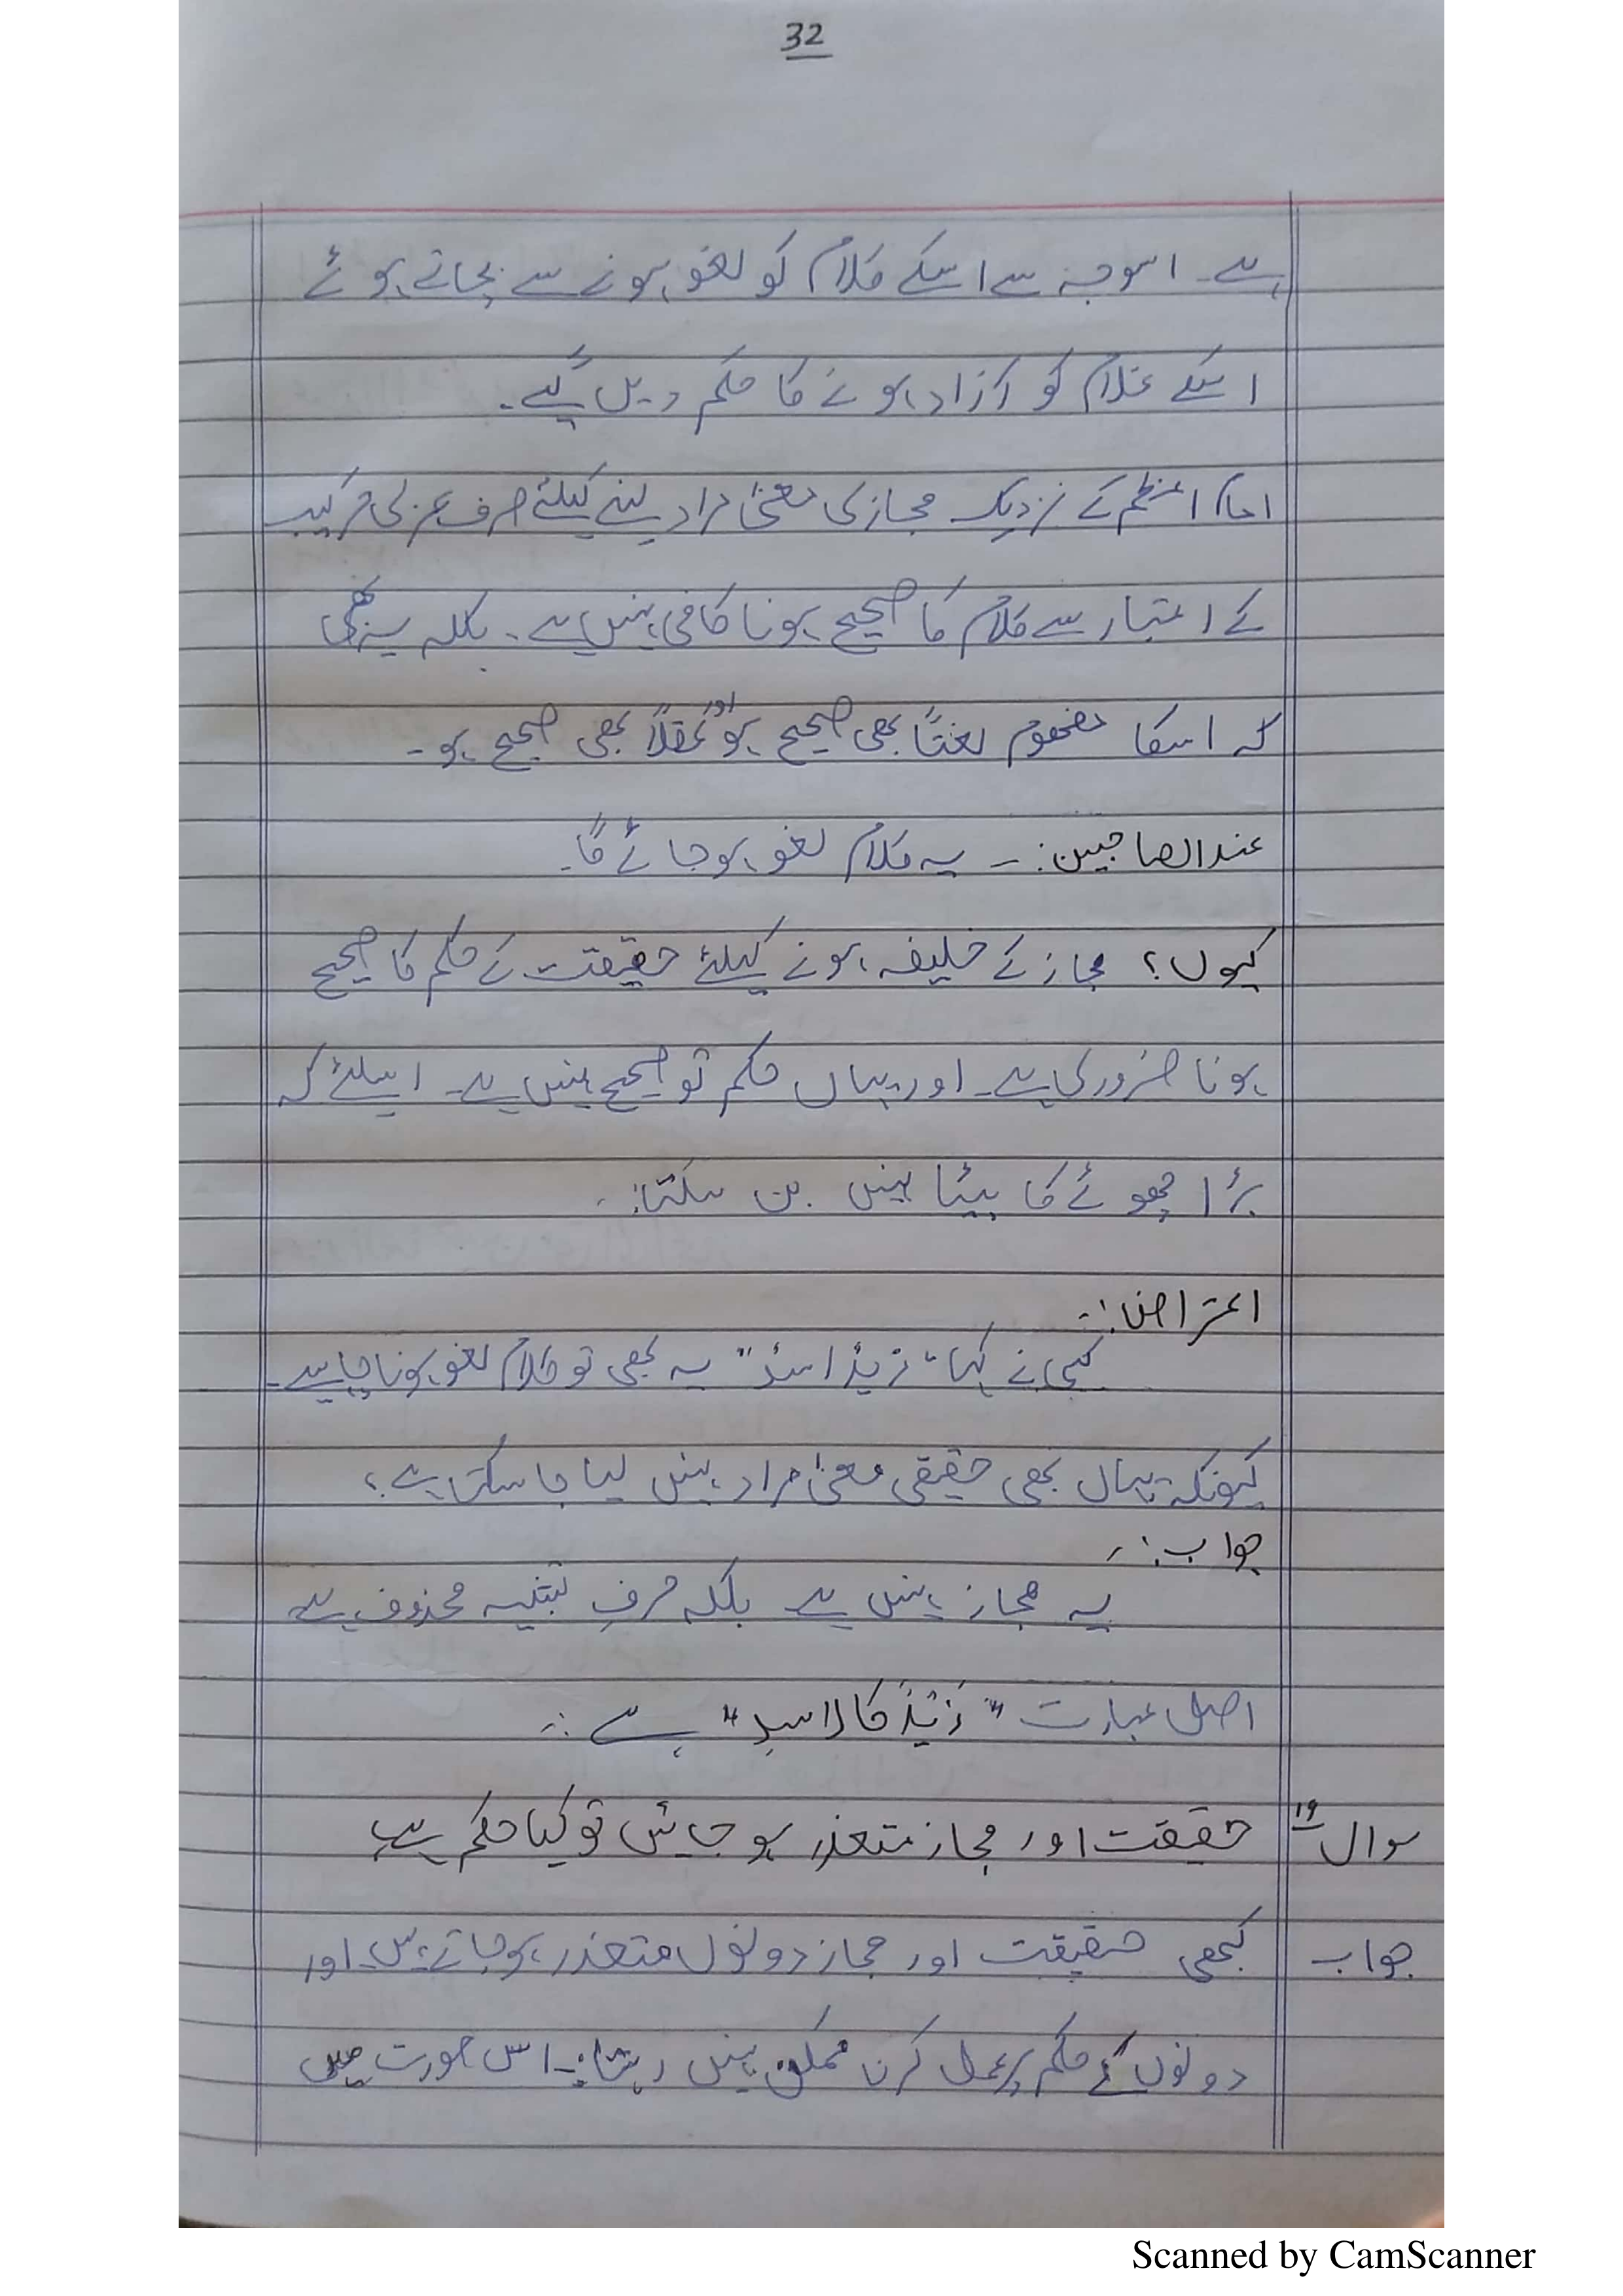 32
ہے۔ اسوجہ سے اسکے کلام کو لغو ہونے سے بچاتے ہوئے
اسکے غلام کو آزاد ہونے کا حکم دیں گے۔
امام اعظم کے نزدیک مجازی معنیٰ مراد لینے کیلئے صرف عربی ترکیب
کے اعتبار سے کلام کا صحیح ہونا کافی نہیں ہے۔ بلکہ یہ بھی
کہ اسکا مفہوم لغتاً بھی صحیح ہو اور عقلاً بھی صحیح ہو۔
عند الصاحبین:- یہ کلام لغو ہوجائے گا۔
کیوں؟ مجاز کے خلیفہ ہونے کیلئے حقیقت کے حکم کا صحیح
ہونا ضروری ہے۔ اور یہاں حکم تو صحیح نہیں ہے۔ اسلئے کہ
بڑا چھوٹے کا بیٹا نہیں بن سکتا:۔
اعتراض:۔
کسی نے کہا "زیدٌ اسدٌ" یہ بھی تو کلام لغو ہونا چاہیے۔
کیونکہ یہاں بھی حقیقی معنیٰ مراد نہیں لیا جا سکتا ہے؟
جواب:۔
یہ مجاز نہیں ہے بلکہ حرفِ تشبیہ محذوف ہے
اصل عبارت "زَیْدٌ کالاسدِ" ہے :۔
سوال ۱۹ حقیقت اور مجاز متعذر ہو جائیں تو کیا حکم ہے
جواب کبھی حقیقت اور مجاز دونوں متعذر ہوجاتے ہیں اور
دونوں کے حکم پر عمل کرنا ممکن نہیں رہتا:۔ اس صورت میں
Scanned by CamScanner